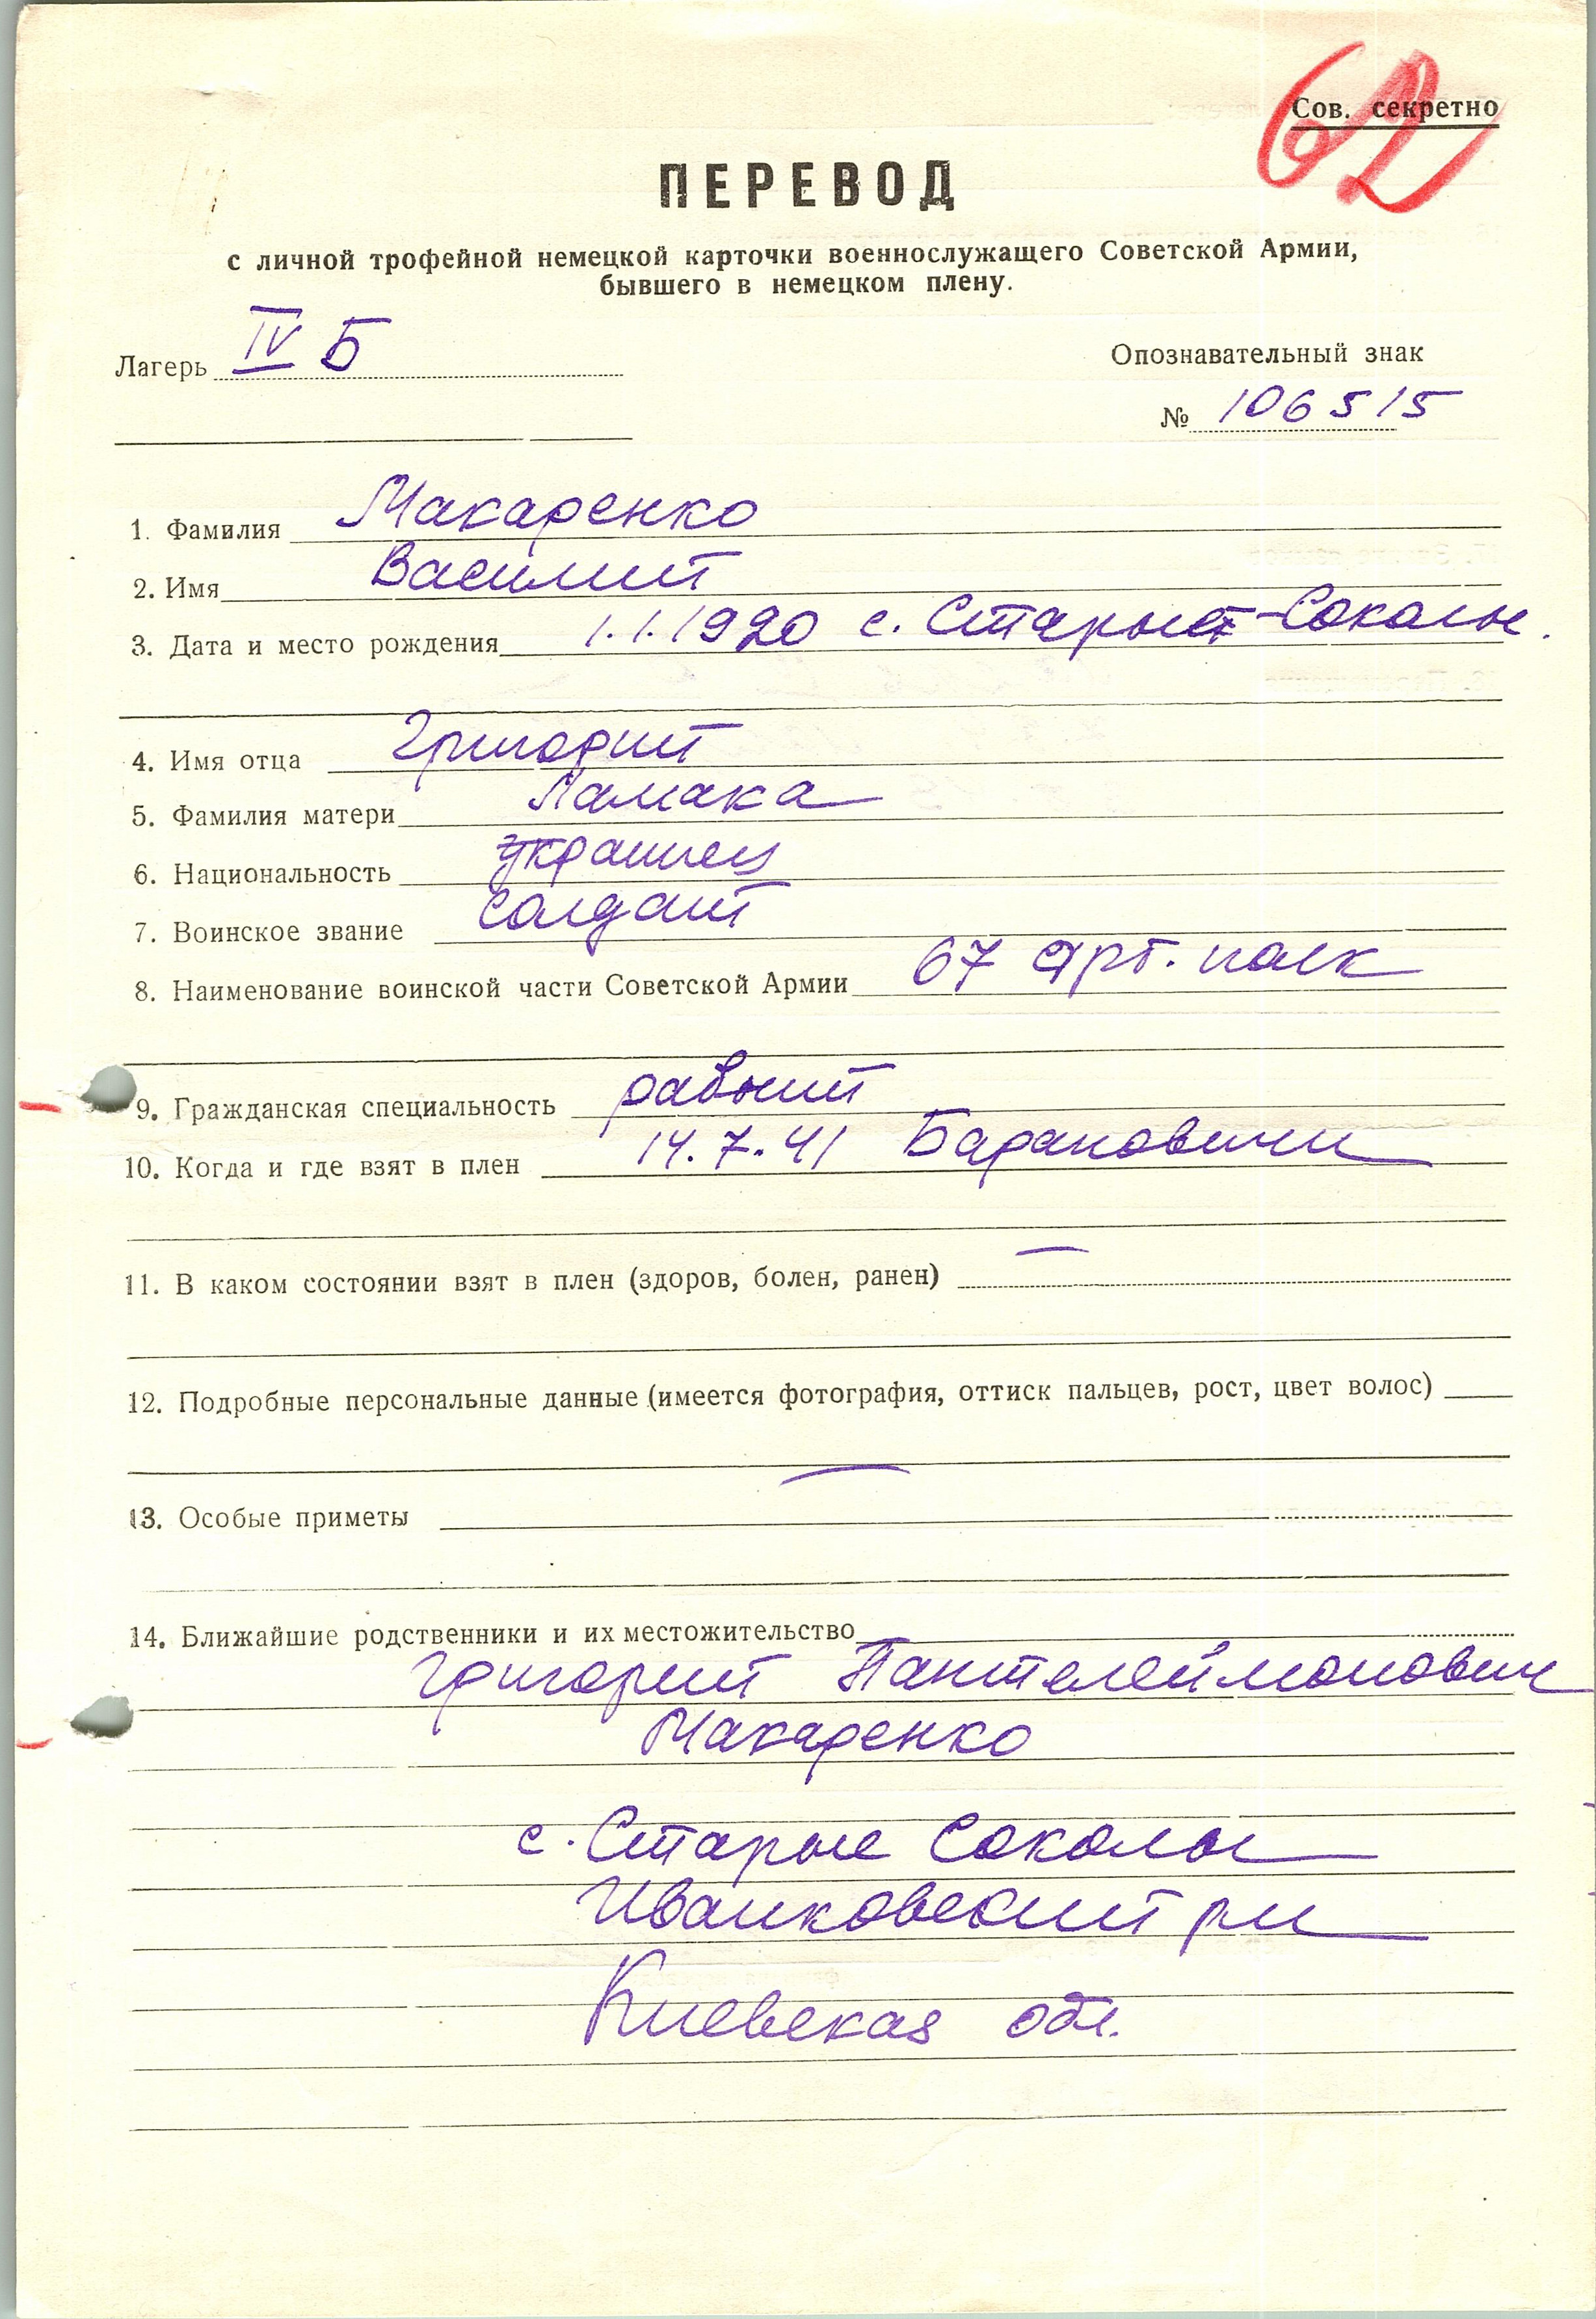 62
Сов. секретно
ПЕРЕВОД
с личной трофейной немецкой карточки военнослужащего Советской Армии,
бывшего в немецком плену.
Лагерь IV Б
Опознавательный знак
№ 106515
1. Фамилия Макаренко
2. Имя Василий
3. Дата и место рождения 1.1.1920 с. Старые-Соколы.
4. Имя отца Григорий
5. Фамилия матери Ламака
6. Национальность украинец
7. Воинское звание солдат
8. Наименование воинской части Советской Армии 67 Арт. полк
9. Гражданская специальность рабочий
10. Когда и где взят в плен 14.7.41 Барановичи
11. В каком состоянии взят в плен (здоров, болен, ранен) —
12. Подробные персональные данные (имеется фотография, оттиск пальцев, рост, цвет волос)
—
13. Особые приметы
14. Ближайшие родственники и их местожительство
Григорий Пантелеймонович
Макаренко
с. Старые Соколы
Иванковский р-н
Киевская обл.